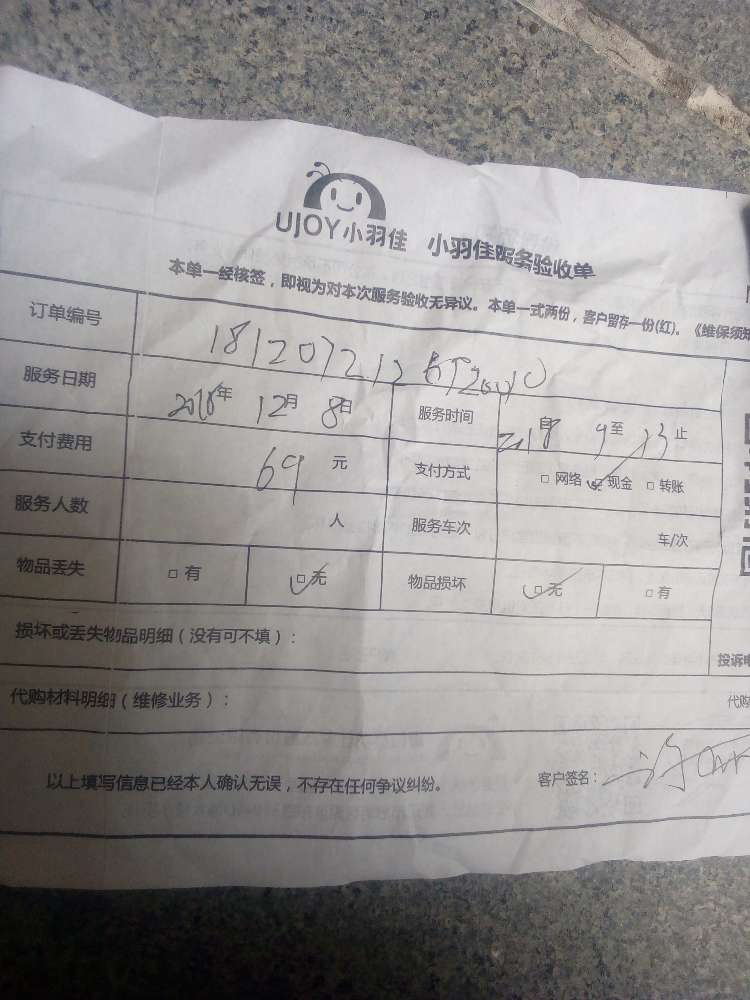 UJOY小羽佳 小羽佳服务验收单
本单一经核签，即视为对本次服务验收无异议。本单一式两份，客户留存一份(红)。《维保须知
订单编号
服务日期 2018年 12月 8日 服务时间 自 9至 13止
支付费用 69 元 支付方式 □ 网络 ☑ 现金 □ 转账
服务人数 人 服务车次 车/次
物品丢失 □ 有 ☑ 无 物品损坏 ☑ 无 □ 有
损坏或丢失物品明细（没有可不填）： 投诉电
代购材料明细（维修业务）： 代购
以上填写信息已经本人确认无误，不存在任何争议纠纷。 客户签名：